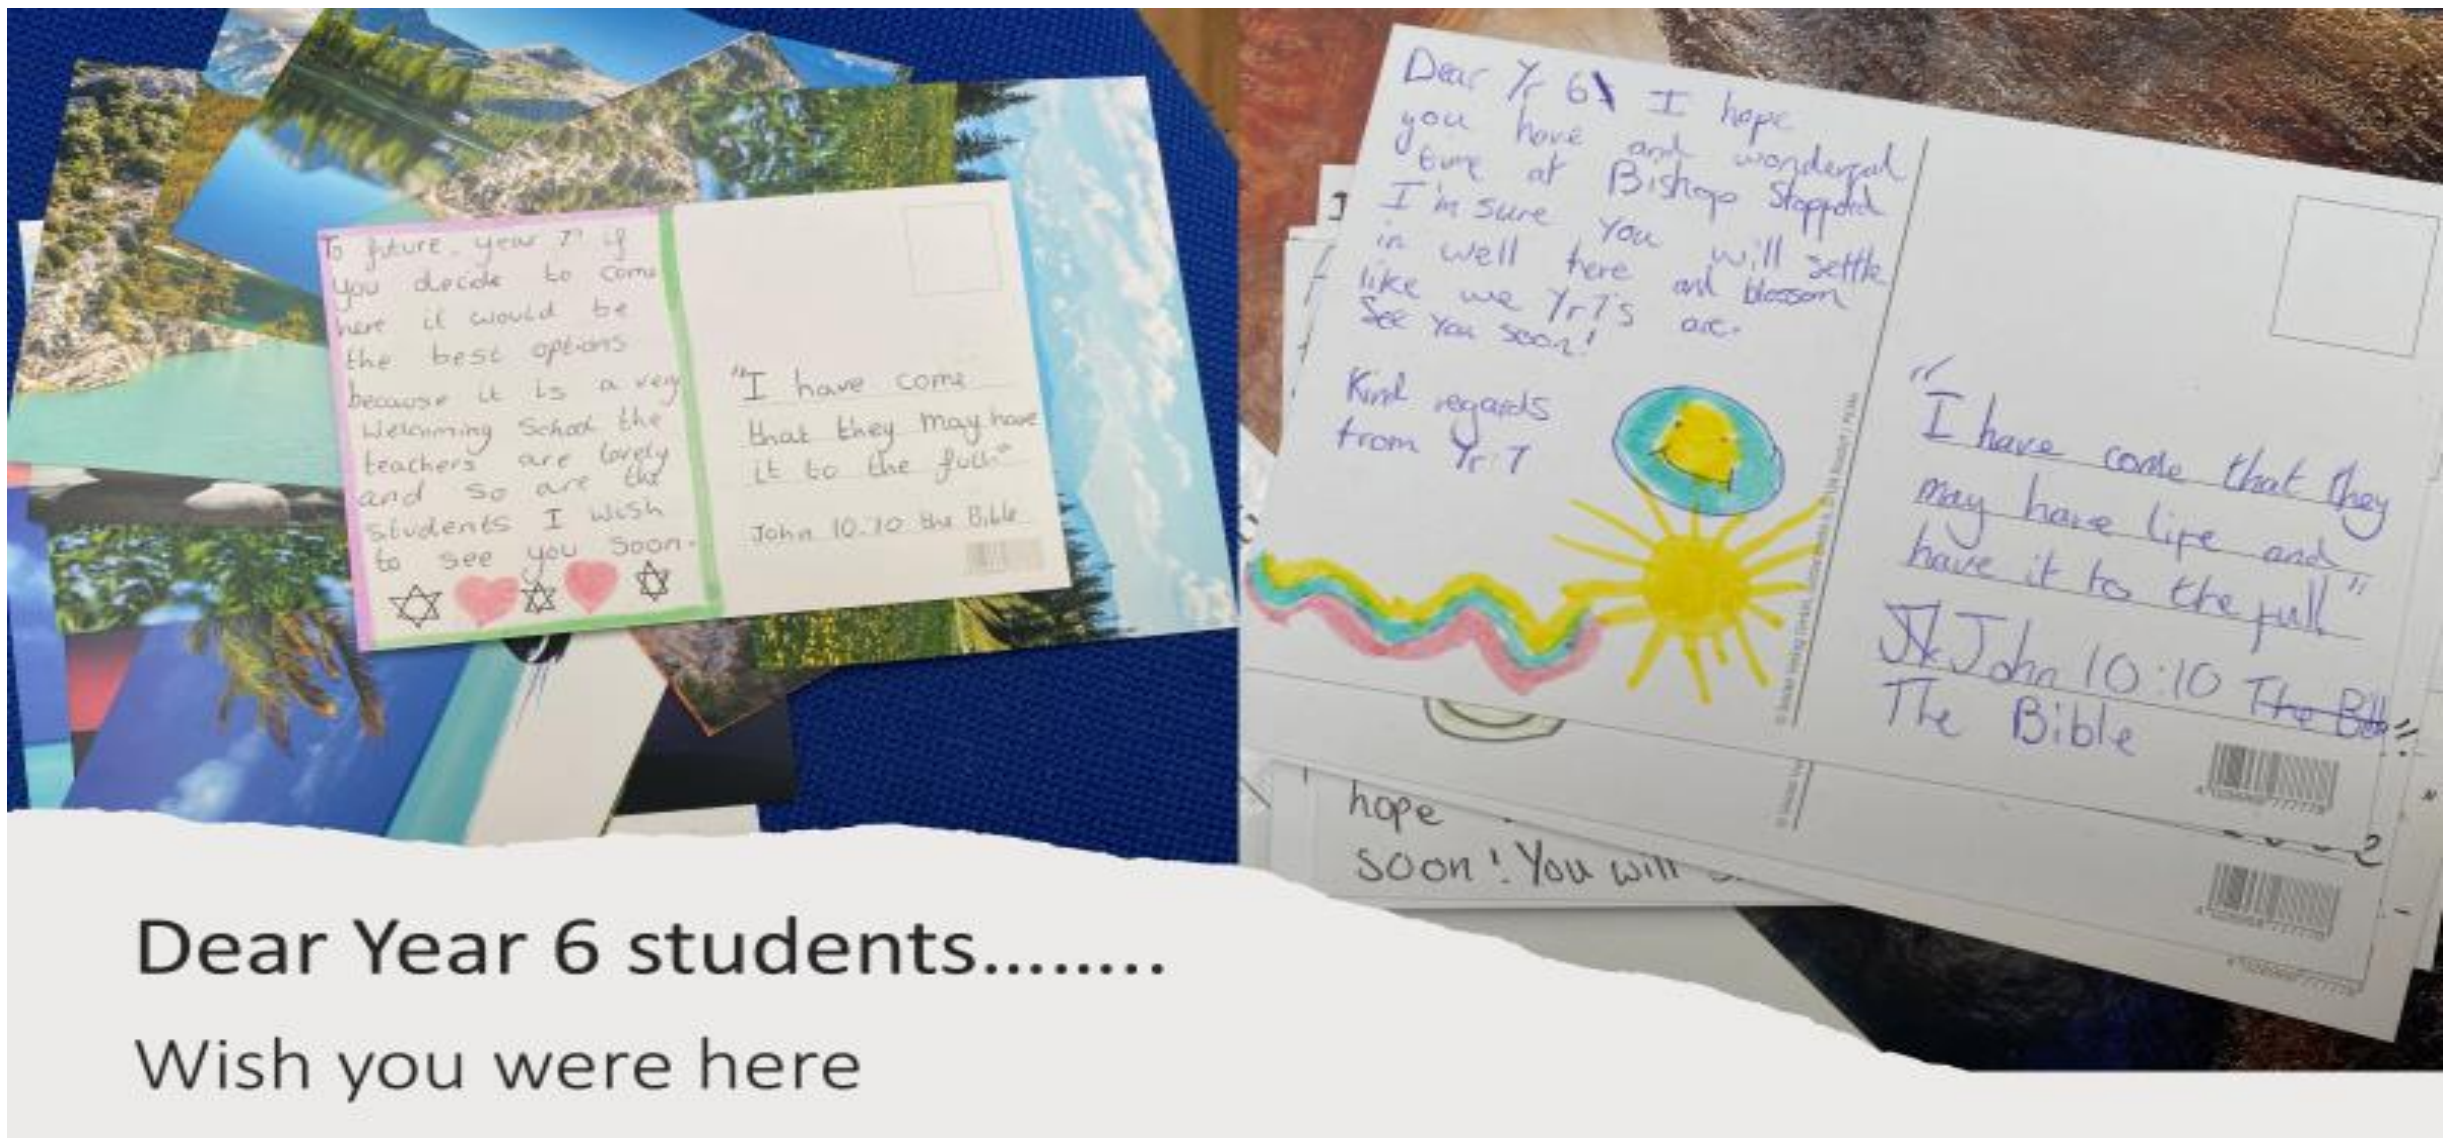 To future year 7' if
you decide to come
here it would be
the best options
because it is a very
Welcoming School the
teachers are lovely
and so are the
students I wish
to see you soon.
"I have come
that they may have
it to the full"
John 10:10 the Bible
Dear Yr 6 I hope
you have and wonderful
time at Bishop Stopford
I'm sure you will settle
in well here and blossom
like we Yr7's are.
See you soon!
Kind regards
from Yr 7
"I have come that they
may have life and
have it to the full"
John 10:10 The Bible
The Bible
hope
soon! You will
Dear Year 6 students........
Wish you were here